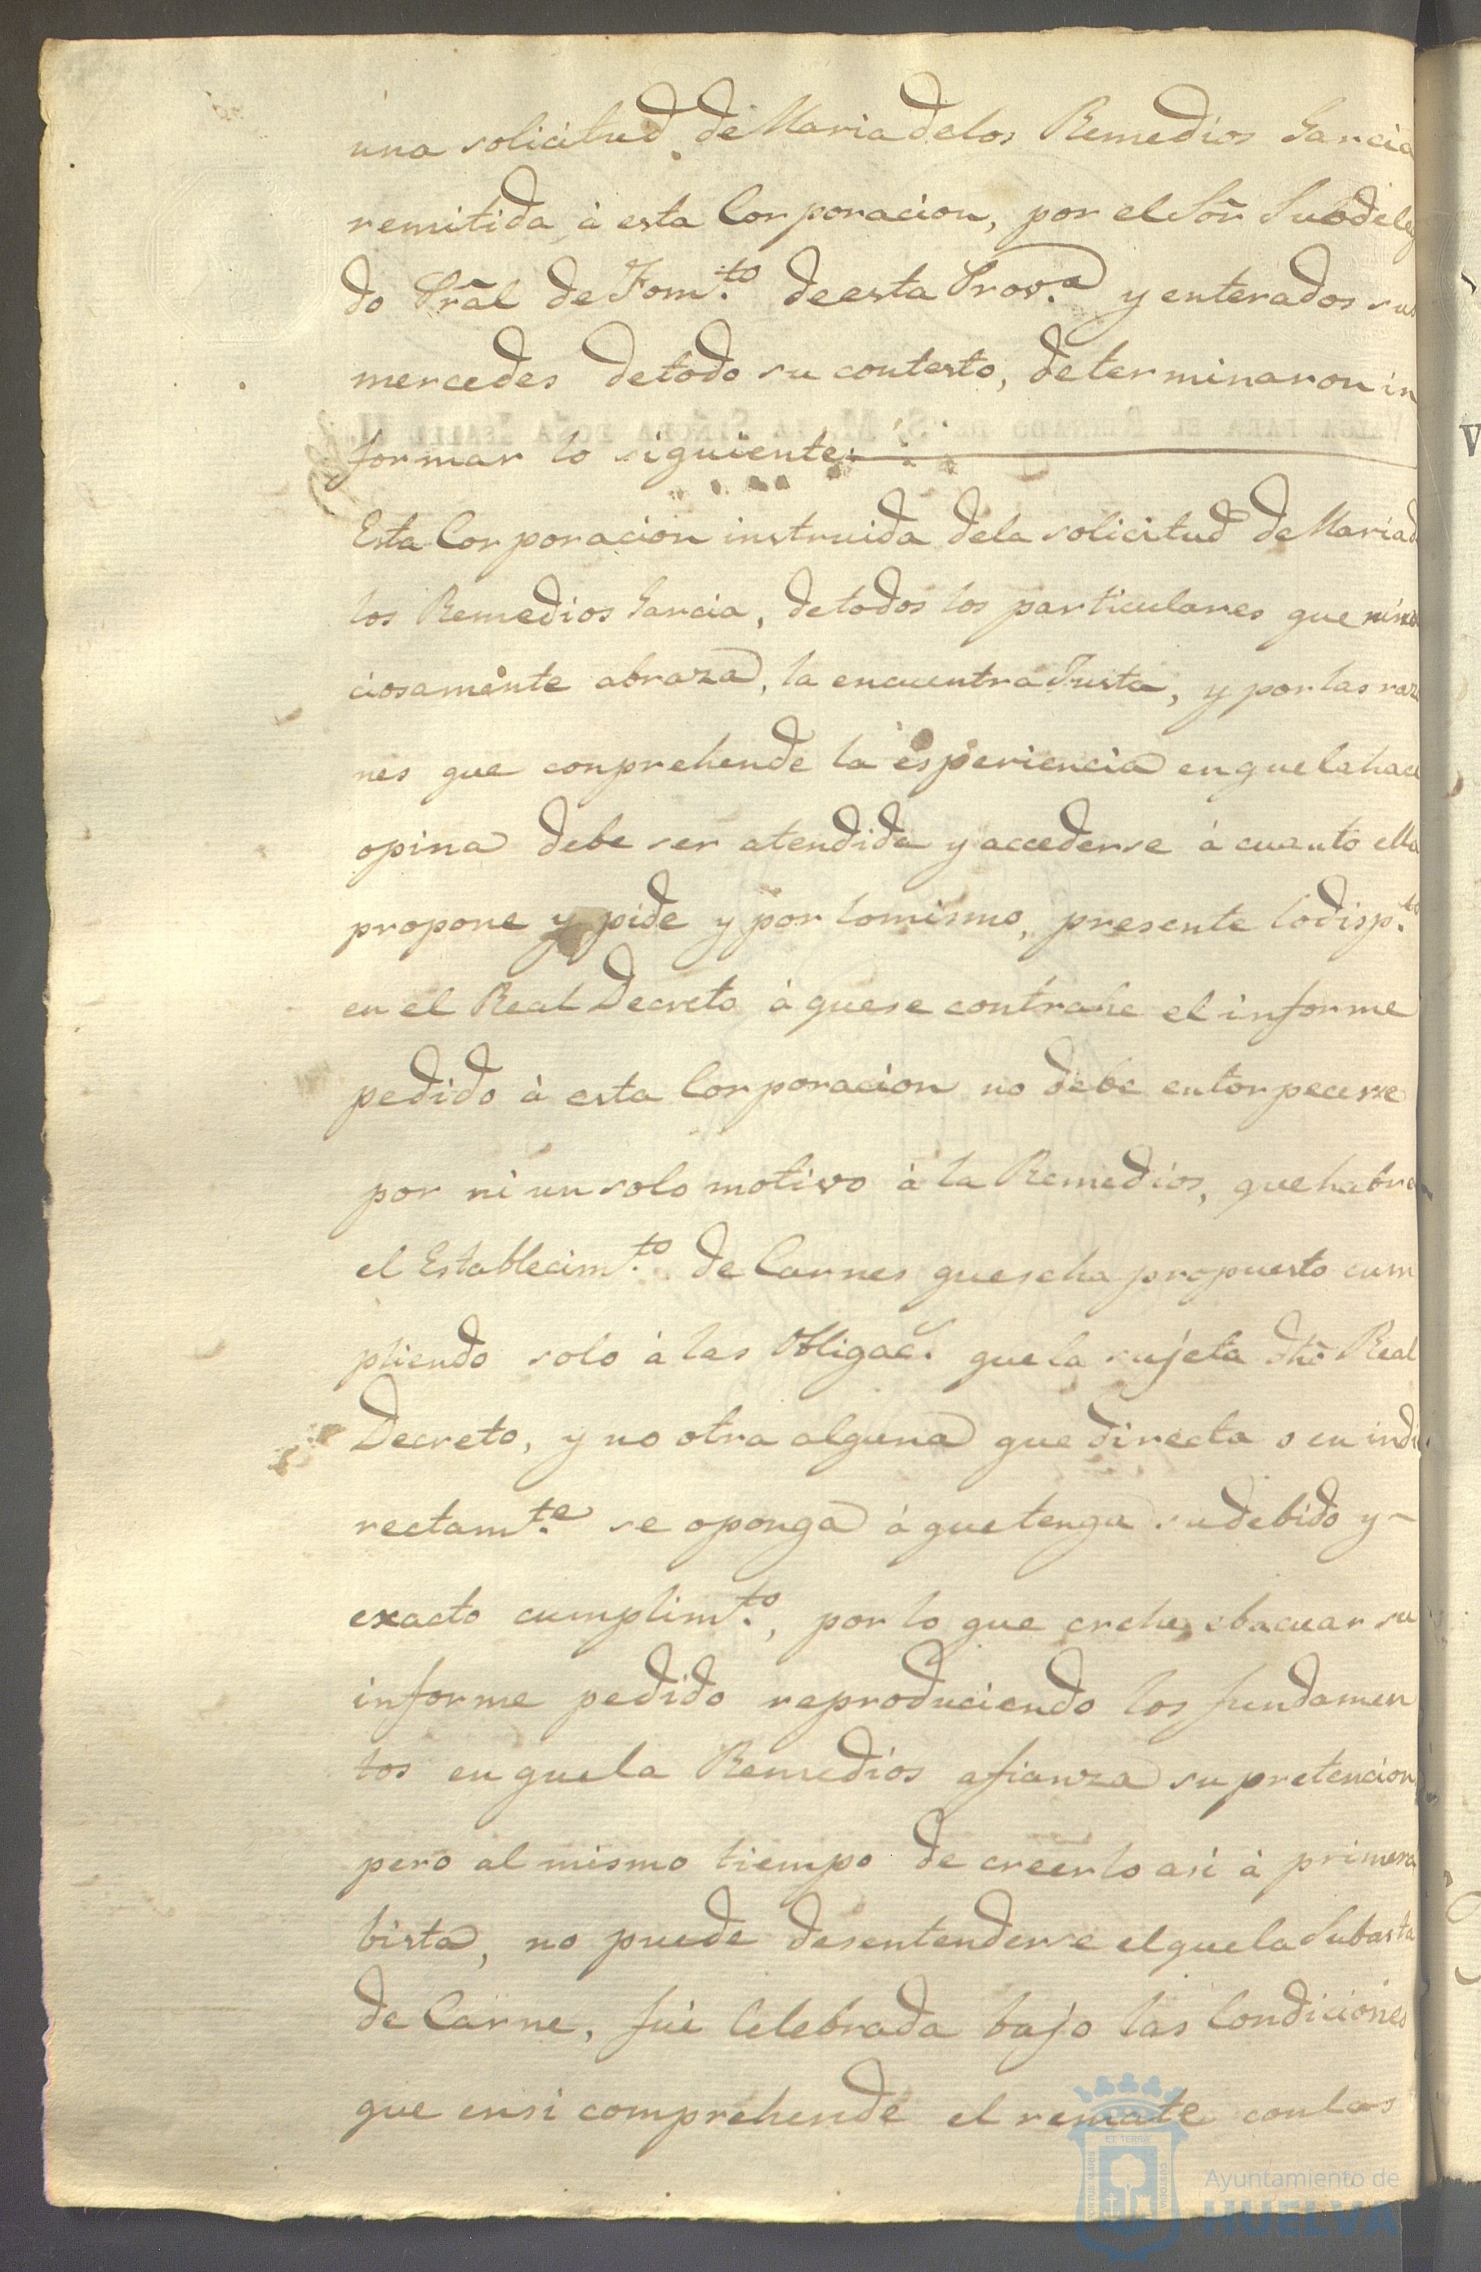 una solicitud de Maria de los Remedios Garcia
remitida à esta Corporacion, por el Sõr Subdeleg
do Prãl de Fom.to de esta Prov.a y enterados sus
mercedes de todo su contesto, determinaron in
formar lo siguiente:
Esta Corporacion instruida de la solicitud de Maria d
los Remedios Garcia, de todos los particulares que minu
ciosamente abraza, la encuentra Justa, y por las razo
nes que conprehende la esperiencia en que la hace
opina debe ser atendida y accederse á cuanto ella
propone y pide y por lo mismo, presente lo disp.to
en el Real Decreto à que se contrahe el informe
pedido à esta Corporacion no debe entorpecerse
por ni un solo motivo à la Remedios, que habra
el Establecim.to de Carnes que se ha propuesto cum
pliendo solo á las Obligac.s que la sujeta dho Real
Decreto, y no otra alguna que directa o en indi
rectam.te se oponga á que tenga su debido y
exacto cumplim.to, por lo que crehe ebacuar su
informe pedido reproduciendo los fundamen
tos en que la Remedios afianza su pretencion
pero al mismo tiempo de creerlo asi à primera
bista, no puede desentenderse el que la Subasta
de Carne, fuè Celebrada bajo las Condiciones
que en si comprehende el remate con las
Ayuntamiento de
HUELVA